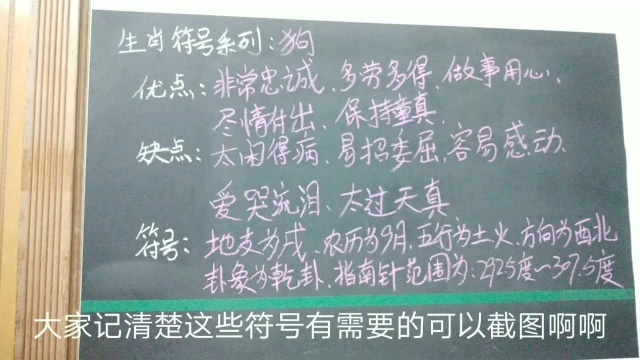 生肖符号系列:狗
优点:非常忠诚、多劳多得、做事用心、
尽情付出、保持童真
缺点:太闲得病、易招委屈、容易感动、
爱哭流泪、太过天真
符号:地支为戌、农历为9月、五行为土火、方向为西北
卦象为乾卦、指南针范围为:292.5度~307.5度
大家记清楚这些符号有需要的可以截图啊啊